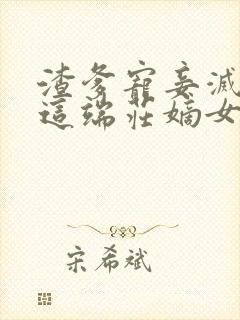 渣爹寵妾滅
這端莊嫡女
宋希斌